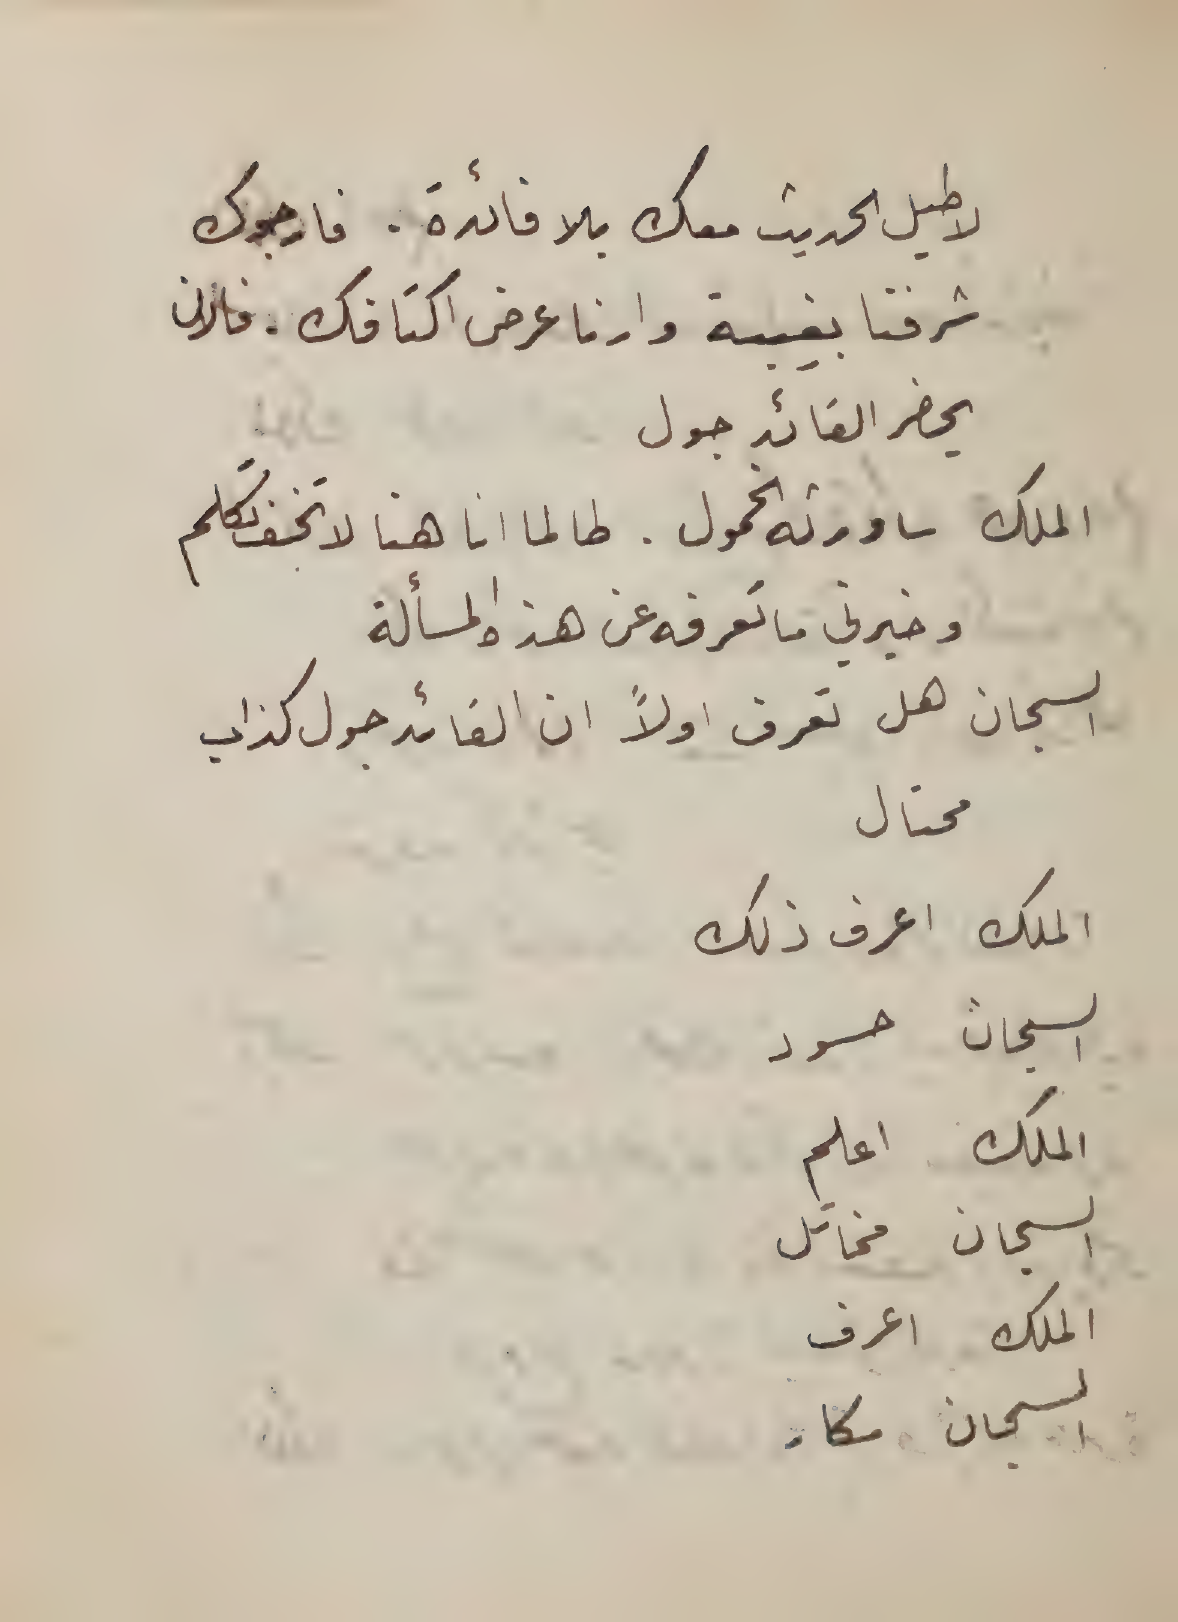 لاطيل الحديث معك بلا فائدة . فارجوك
شرفنا بغيبة وارنا عرض اكتافك . فالان
يحضر القائد جول
الملك ساورثه الخمول . طالما انا هنا لا تخف تكلم
وخبرني ما تعرفه عن هذه المسألة
السجان هل تعرف اولاً ان القائد جول كذاب
محتال
الملك اعرف ذلك
السجان حسود
الملك اعلم
السجان مخاتل
الملك اعرف
السجان مكار